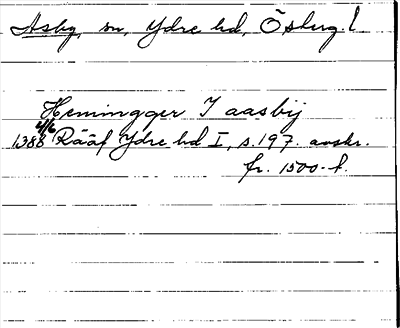 Asby, sn, Ydre hd, Österg. l.
Hemingger I aasbij
4/6
1388 Rääf Ydre hd I, s. 197. avskr.
fr. 1500-t.